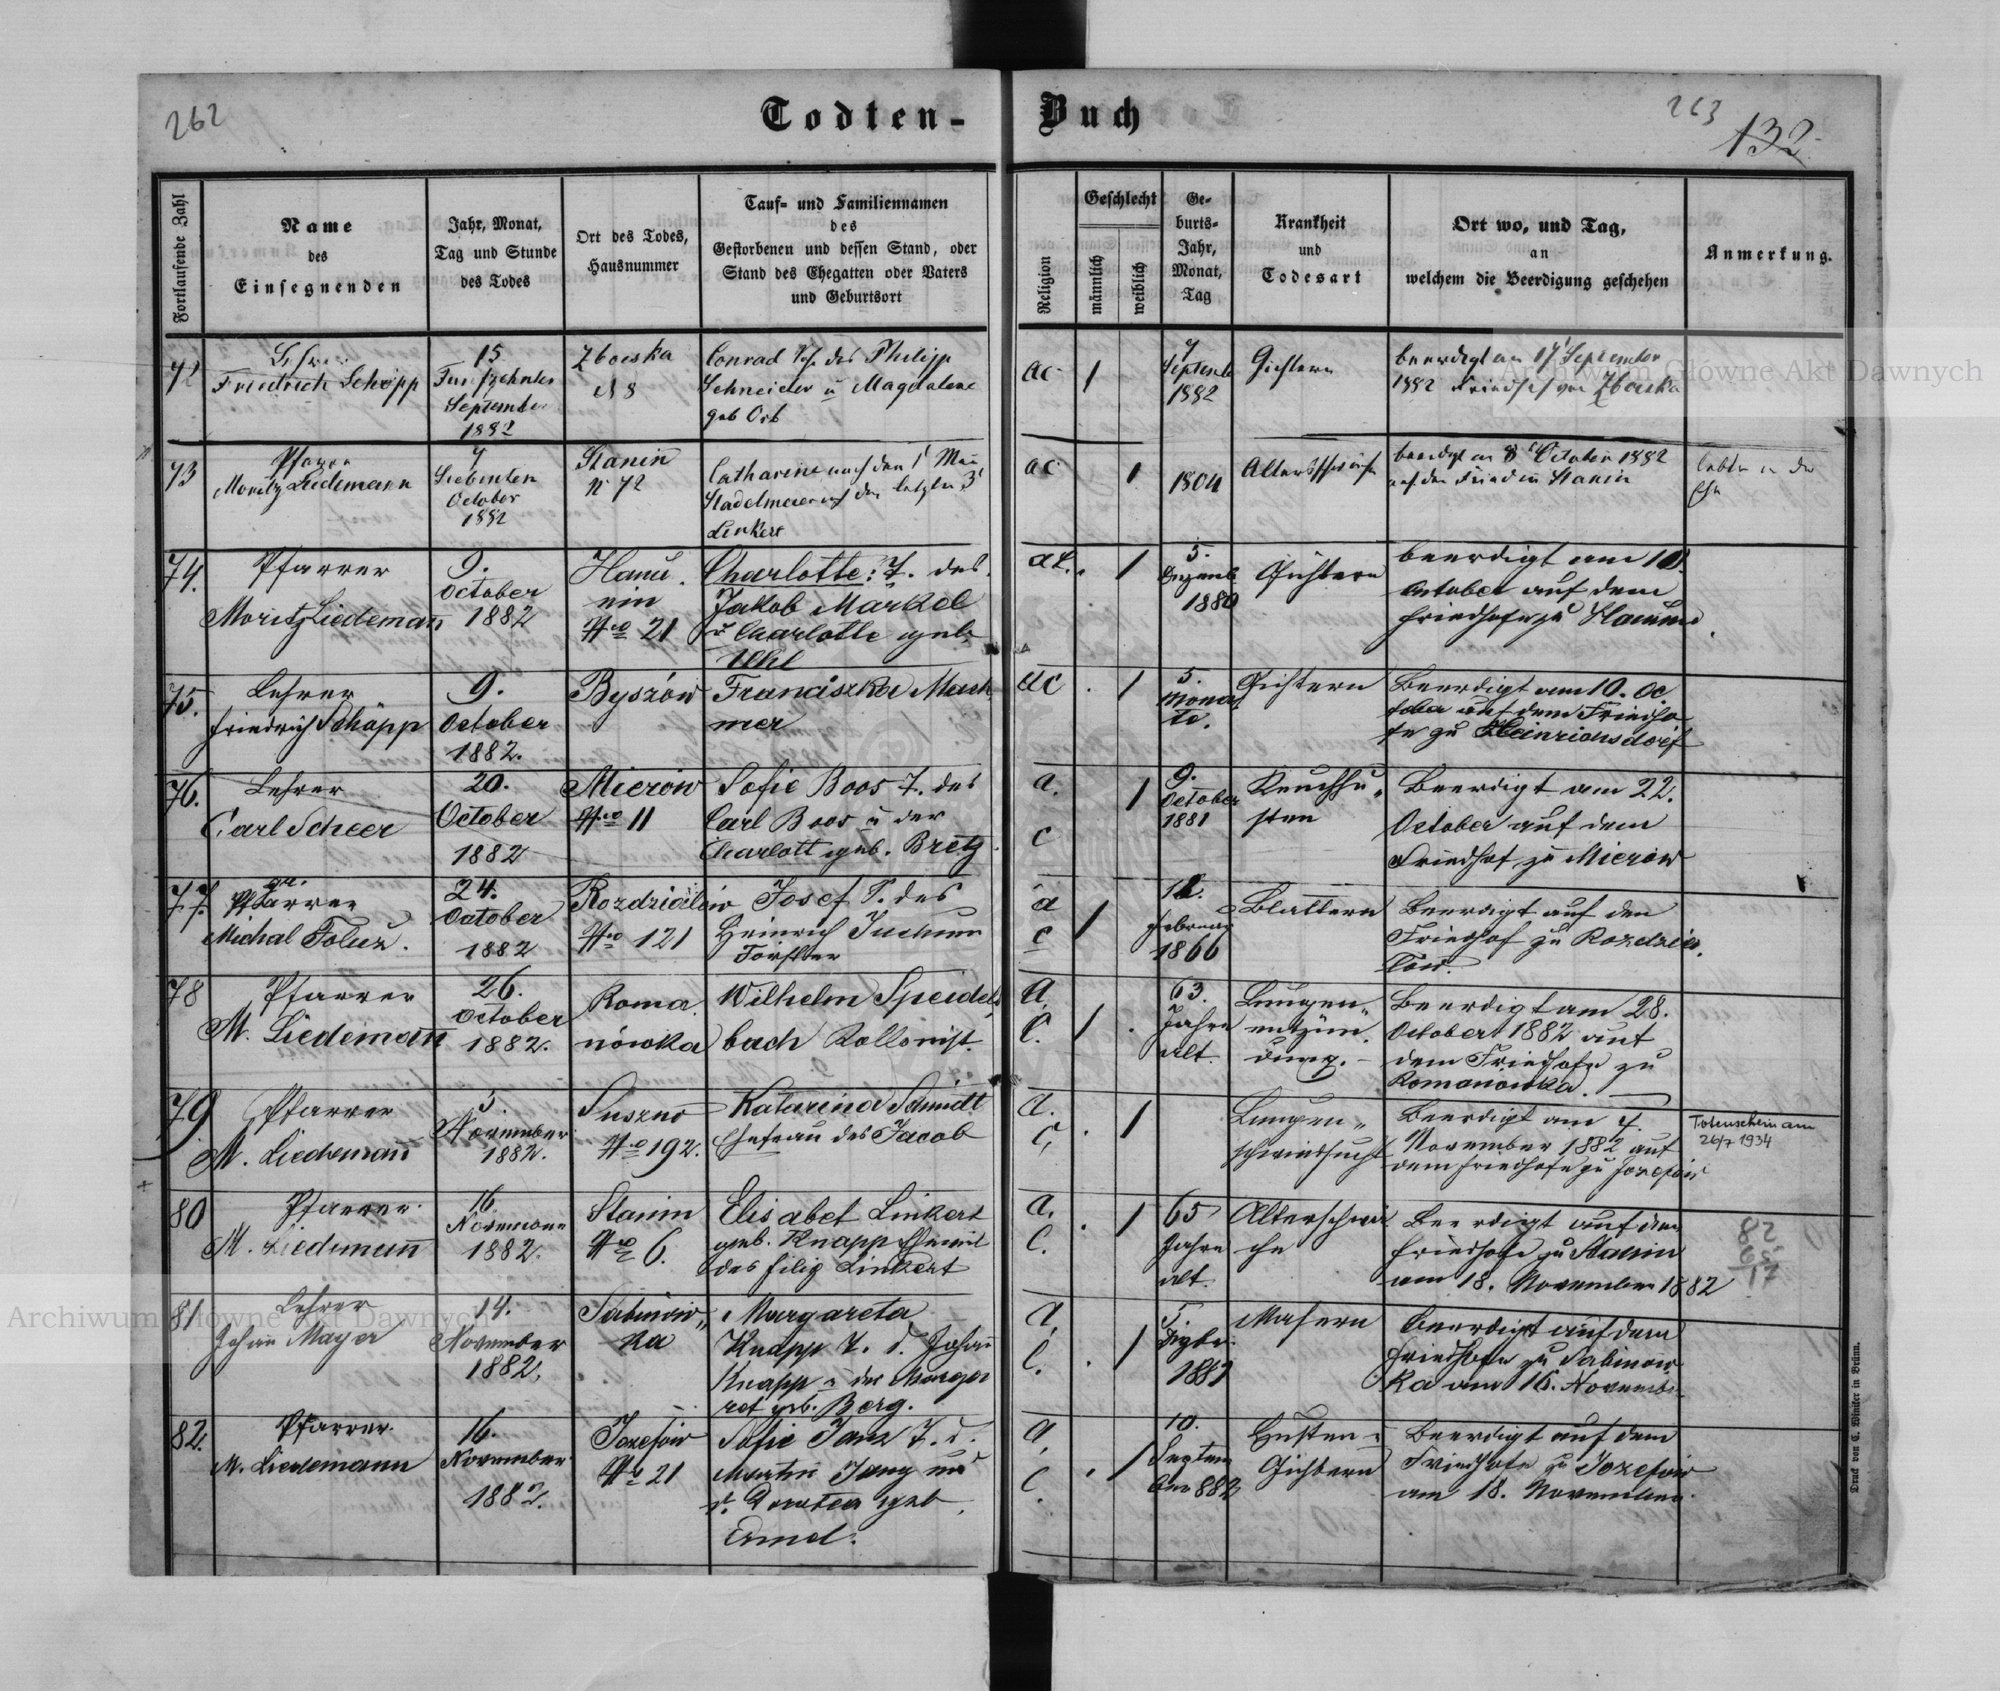 262
Todten-
Buch
263
132
Fortlaufende Zahl
Name
des
Einsegnenden
Jahr, Monat,
Tag und Stunde
des Todes
Ort des Todes,
Hausnummer
Tauf- und Familiennamen
des
Gestorbenen und dessen Stand, oder
Stand des Ehegatten oder Vaters
und Geburtsort
Religion
Geschlecht
männlich
weiblich
Ge-
burts-
Jahr,
Monat,
Tag
Krankheit
und
Todesart
Ort wo, und Tag,
an
welchem die Beerdigung geschehen
Anmerkung.
72
Lehrer
Friedrich Schöpp
15
Funfzehnten
September
1882
Zboiska
N 8
Conrad des Philipp
Schneider u Magdalene
geb Ort
ac
1
7
Septemb
1882
Gichtern
beerdigt am 17 September
1882 Friedhof von Zboiska
73
Pfarrer
Moritz Liedemann
7
Siebenten
October
1882
Stanin
N 72
Catharine nach den 1 Man
Stadelmeier auf den letzten 3
Linkert
ac
1
1804
Altersschwäche
beerdigt am 8 October 1882
auf den Fried in Stanin
lebte in der
Ehe
74.
Pfarrer
Moritz Liedeman
9.
October
1882
Hanu
nin
Nro 21
Charlotte: T. des
Jakob Märkel
u Charlotte geb.
Uhl
ac.
1
5.
Dezemb
1880
Gichtern
beerdigt am 10.
October auf dem
Friedhofe zu Hanunin
75.
Lehrer
Friedrich Schöpp
9.
October
1882.
Byszów
Franciszka Mach
mer
ac
1
5.
Mona
te.
Gichtern
Beerdigt am 10. Oc
tober auf dem Friedho
fe zu Heinrichsdorf
76.
Lehrer
Carl Scheer
20.
October
1882
Mierów
Nro 11
Sofie Boos T. des
Carl Boos u der
Charlott geb. Bretz
a.
c
1
9.
October
1881
Keuchhu
sten
Beerdigt am 22.
October auf dem
Friedhof zu Mierów
77.
gr.
Pfarrer
Michal Foluz.
24.
October
1882
Rozdzialów
Nro 121
Josef S. des
Heinrich Juchum
Förster
a
c
1
Februar
1866
Blattern
Beerdigt auf den
Friedhof zu Rozdzia
low.
78
Pfarrer
M. Liedemann
26.
October
1882.
Roma
nówka
Wilhelm Speidel
bach Kollonist.
a.
c.
1
63.
Jahre
alt.
Lungen
entzün
dung.
Beerdigt am 28.
October 1882 auf
dem Friedhofe zu
Romanówka.
79
Pfarrer
M. Liedemann
5.
November
1882.
Suszno
Nro 192.
Katarina Schmidt
Ehefrau des Jacob
a.
c.
1
Lungen
schwindsucht
Beerdigt am 7.
November 1882 auf
dem Friedhofe zu Jozefow
Totenschein am
26/7 1934
80
Pfarrer
M. Liedemann
16.
November
1882.
Stanin
Nro 6.
Elisabet Linkert
geb. Knapp
des Filip Linkert
a.
c.
1
65
Jahre
alt
Alterschwä
che
Beerdigt auf dem
Friedhofe zu Stanin
am 18. November 1882
82
65
17
81
Lehrer
Johan Mayer
14.
November
1882.
Sabinów
ka
Margareta
Knapp T. d. Johan
Knapp u der Marga
ret geb. Berg.
a.
c.
1
5.
Dezbr.
1881
Masern
Beerdigt auf dem
Friedhofe zu Sabinow
ka am 16. November
82.
Pfarrer.
M. Liedemann
16.
November
1882.
Jozefów
Nro 21
Sofie Janz T. d.
Martin Janz und
d. Dorotea geb.
Ermel.
a.
c.
1
10.
Septem
ber 882
Husten u
Gichtern
Beerdigt auf dem
Friedhofe zu Jozefow
am 18. November.
Druck von C. Winiker in Brünn.
Archiwum Główne Akt Dawnych
Archiwum Główne Akt Dawnych